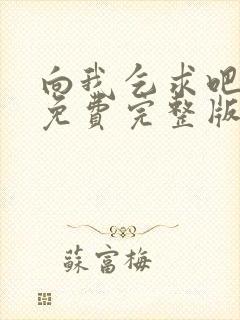 向我乞求吧
免费完整版
蘇富梅